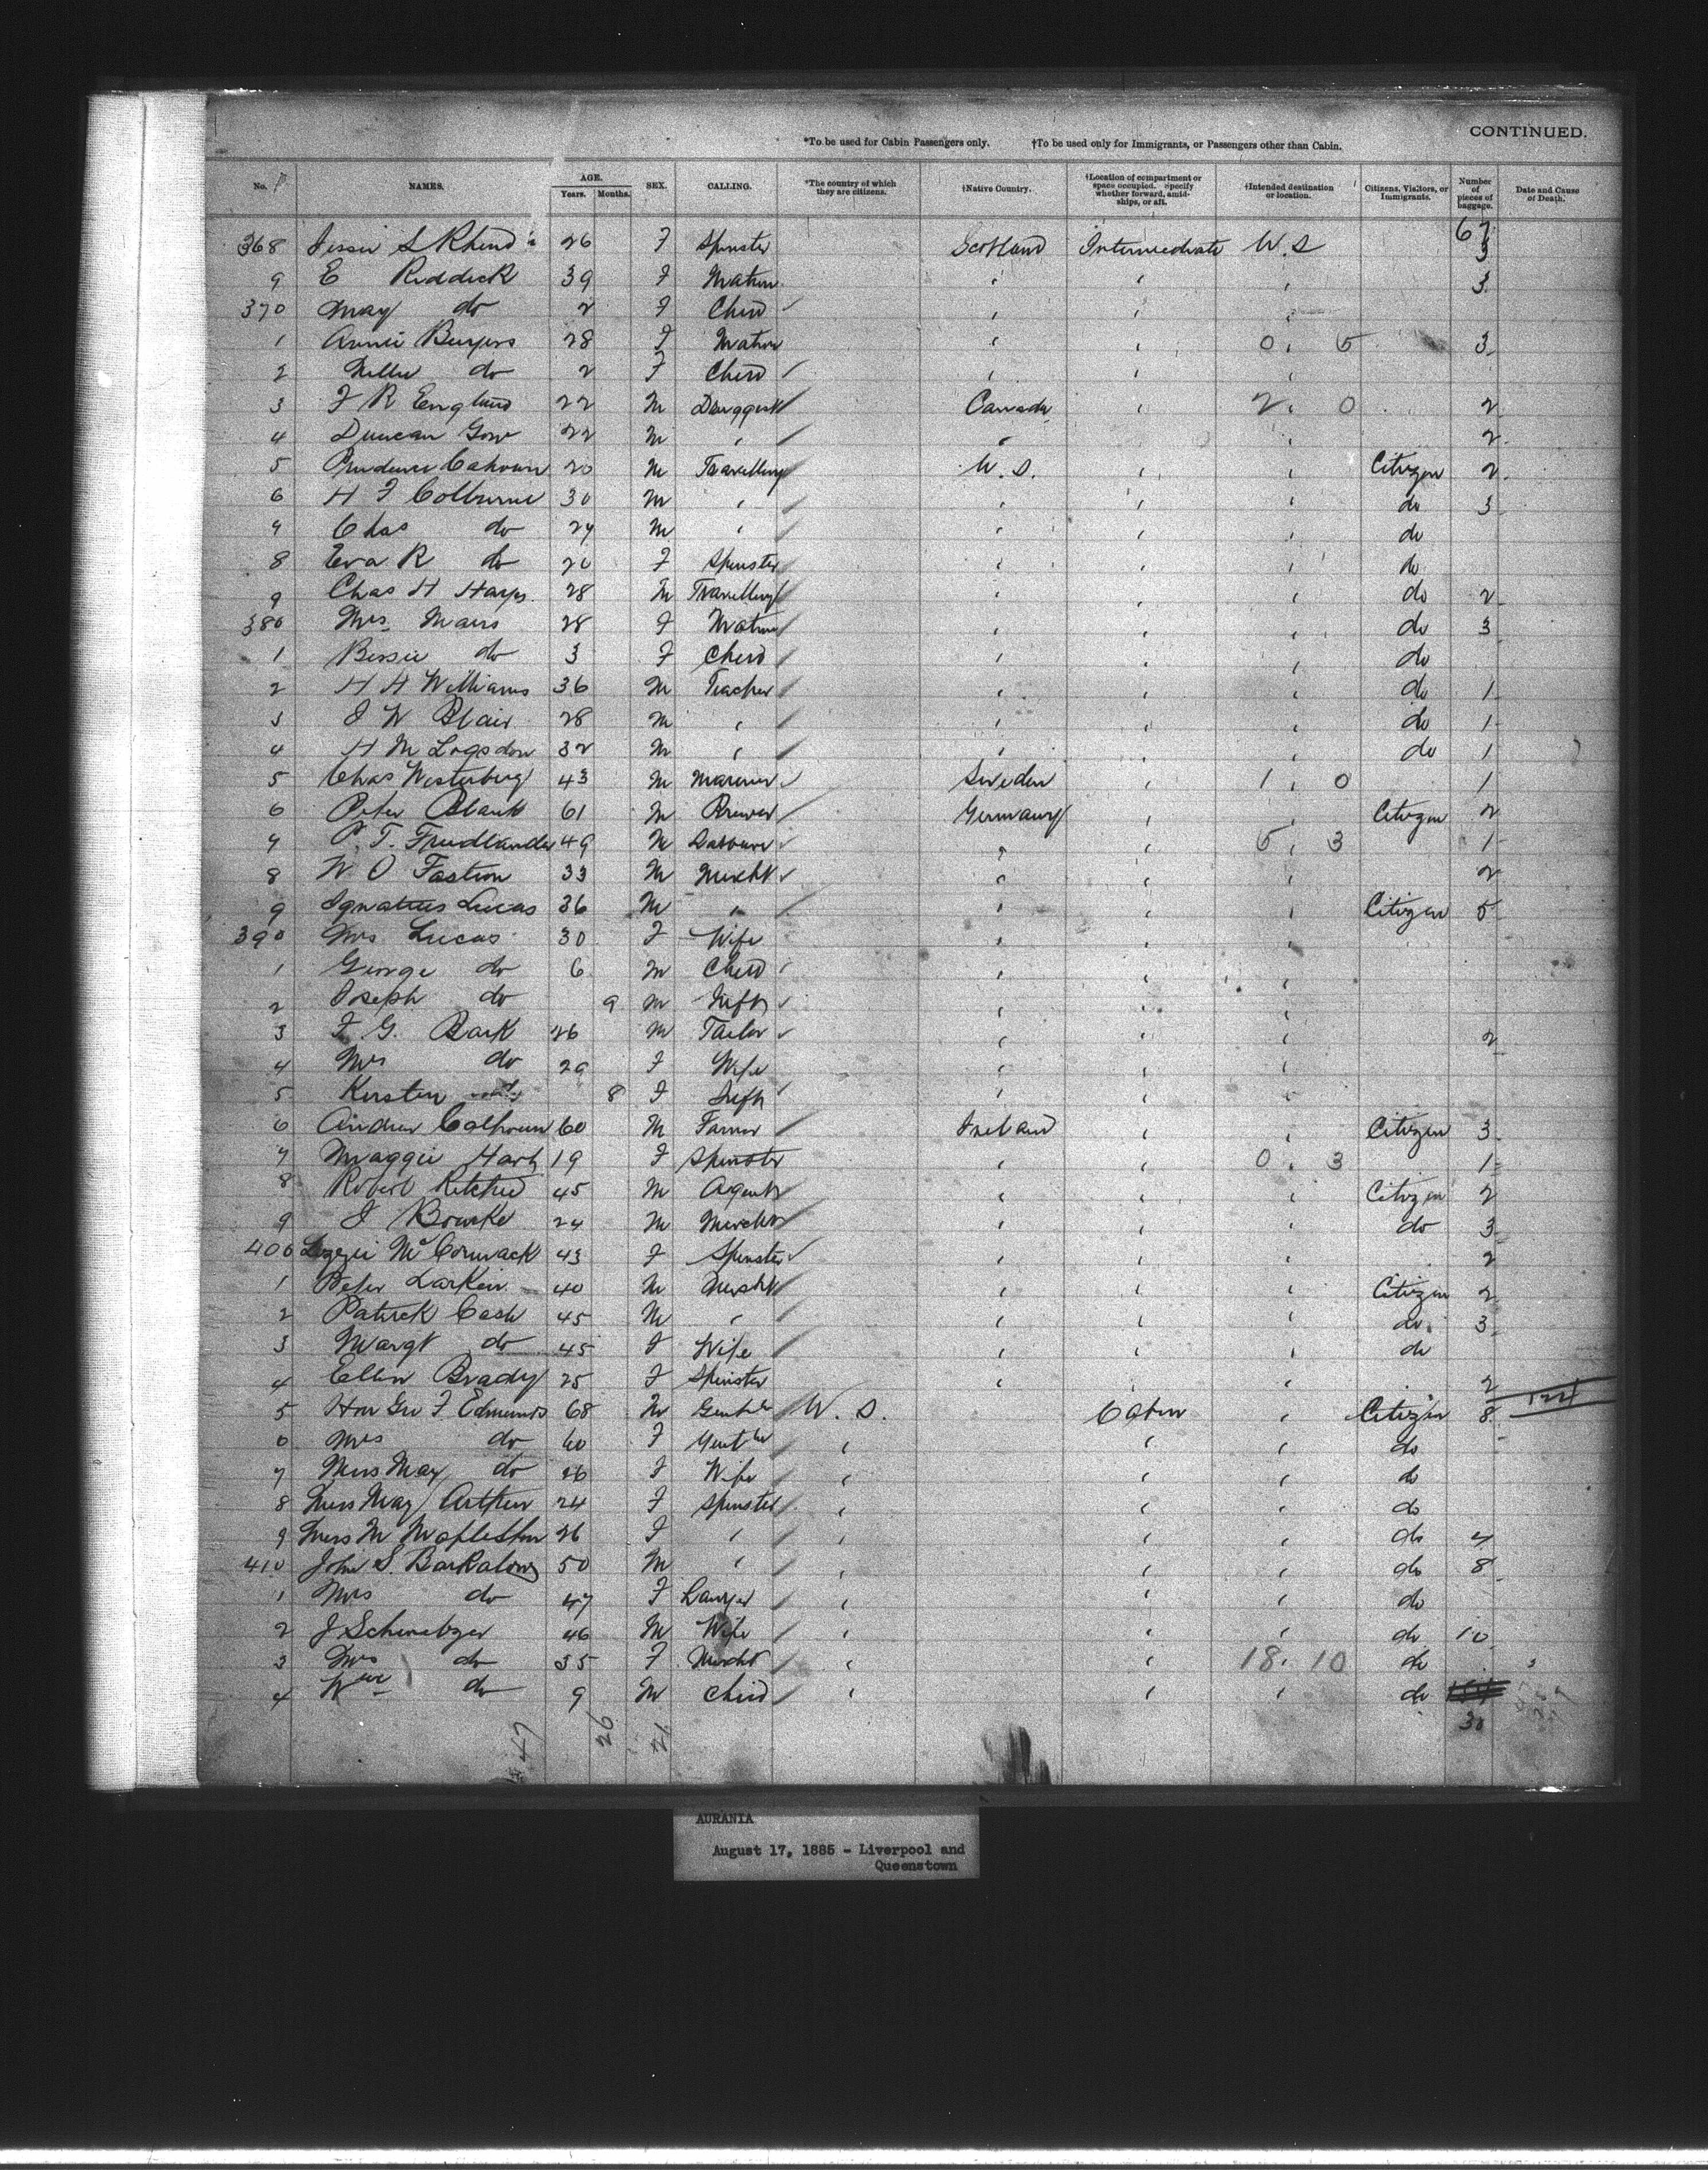 CONTINUED.
*To be used for Cabin Passengers only. †To be used only for Immigrants, or Passengers other than Cabin.
No. NAMES. AGE. Years. Months. SEX. CALLING. *The country of which they are citizens. †Native Country. †Location of compartment or space occupied. Specify whether forward, amidships, or aft. †Intended destination or location. Citizens, Visitors, or Immigrants. Number of pieces of baggage. Date and Cause of Death.
67
368 Jessie S Rhind 26 F Spinster Scotland Intermediate U.S 3
9 E Riddick 39 F Matron " " " 3
370 May do 2 F Child " " "
1 Annie 28 F Matron " " 0 " 5 3
2 Nellie do 2 F Child " " "
3 F R England 22 M Druggist Canada " 2 " 0 2
4 Duncan Gow 22 M " " " " 2
5 20 M Travelling U.S. " " Citizen 2
6 H F Colburne 30 M " " " " do 3
7 Chas do 24 M " " " " do
8 Eva R do 20 F Spinster " " " do
9 Chas H 28 M Travelling " " " do 2
380 Mrs. Mans 28 F Matron " " " do 3
1 Bessie do 3 F Child " " " do
2 H H Williams 36 M Teacher " " " do 1
3 J W Blair 28 M " " " " do 1
4 H M Logsdon 32 M " " " " do 1
5 Chas Westerberg 43 M Mariner Sweden " 1 " 0 1
6 Peter Blank 61 M Brewer Germany " " Citizen 2
7 P. T. Friedlander 49 M Labourer " " 5 " 3 1
8 W O Fastion 33 M Mercht " " " 2
9 Ignatius Lucas 36 M " " " " Citizen 5
390 Mrs Lucas 30 F Wife " " "
1 George do 6 M Child " " "
2 Joseph do 9 M Inft " " "
3 F G. Bark 26 M Tailor " " " 2
4 Mrs do 29 F Wife " " "
5 Kirsten 8 F Inft " " "
6 Andrew Calhoun 60 M Farmer Ireland " " Citizen 3
7 Maggie Hart 19 F Spinster " " 0 " 3 1
8 Robert Ritchie 45 M Agent " " " Citizen 2
9 J Bourke 24 M Mercht " " " do 3
400 Lizzie McCormack 43 F Spinster " " " 2
1 Peter Larkin 40 M Mercht " " " Citizen 2
2 Patrick Cash 45 M " " " " do 3
3 Margt do 45 F Wife " " " do
4 Ellen Brady 25 F Spinster " " " 2
5 Hon Geo F Edmunds 68 M Gentle U.S. Cabin " Citizen 8 124
6 Mrs do 60 F Gentle " " " do
7 Miss May do 26 F Wife " " " do
8 Miss May Arthur 24 F Spinster " " " do
9 Miss M Mapleston 26 F " " " " do 4
410 John S. Barkalow 50 M " " " " do 8
1 Mrs do 47 F Lawyer " " " do
2 J Schweitzer 46 M Wife " " " do 10
3 Mrs do 35 F Mercht " " 18 " 10 do
4 Wm do 9 M Child " " " do
30
47 26 21
AURANIA
August 17, 1885 - Liverpool and
Queenstown